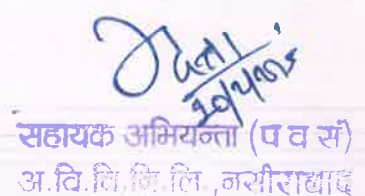 सहायक अभियन्ता (प व सं)
अ.वि.वि.नि.लि.,नसीराबाद